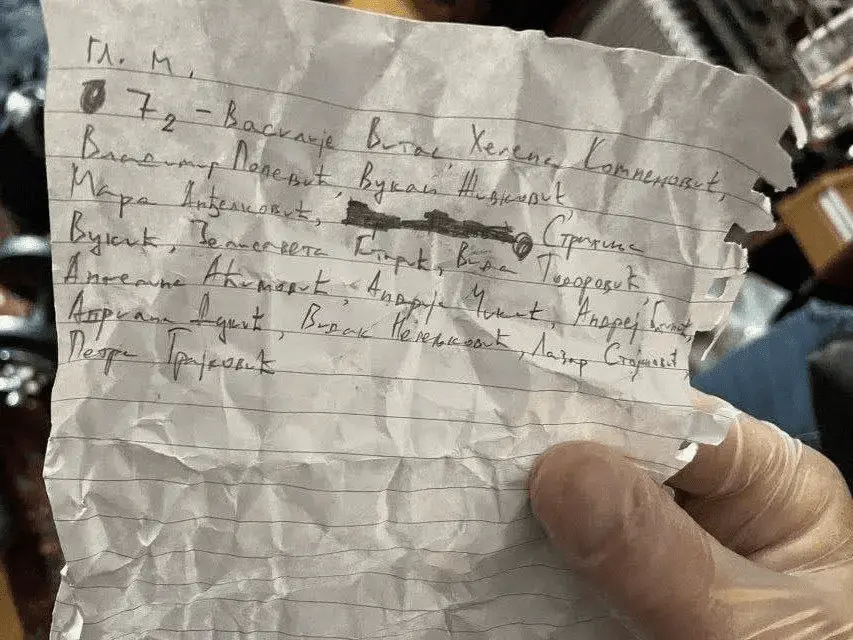 Гл. М.
7₂ - Василије Витас, Хелена Компеновић,
Владимир Попевић, Вукан Живковић
Мара Анђелковић, Стрхиња
Вукић, Елисавета Ђирић, Вида Тодоровић,
Ангелина Акимовић, Андрија Чикић, Андреј
Адриана Дукић, Видак Неђељковић, Лазар Стојановић
Петра Грајковић